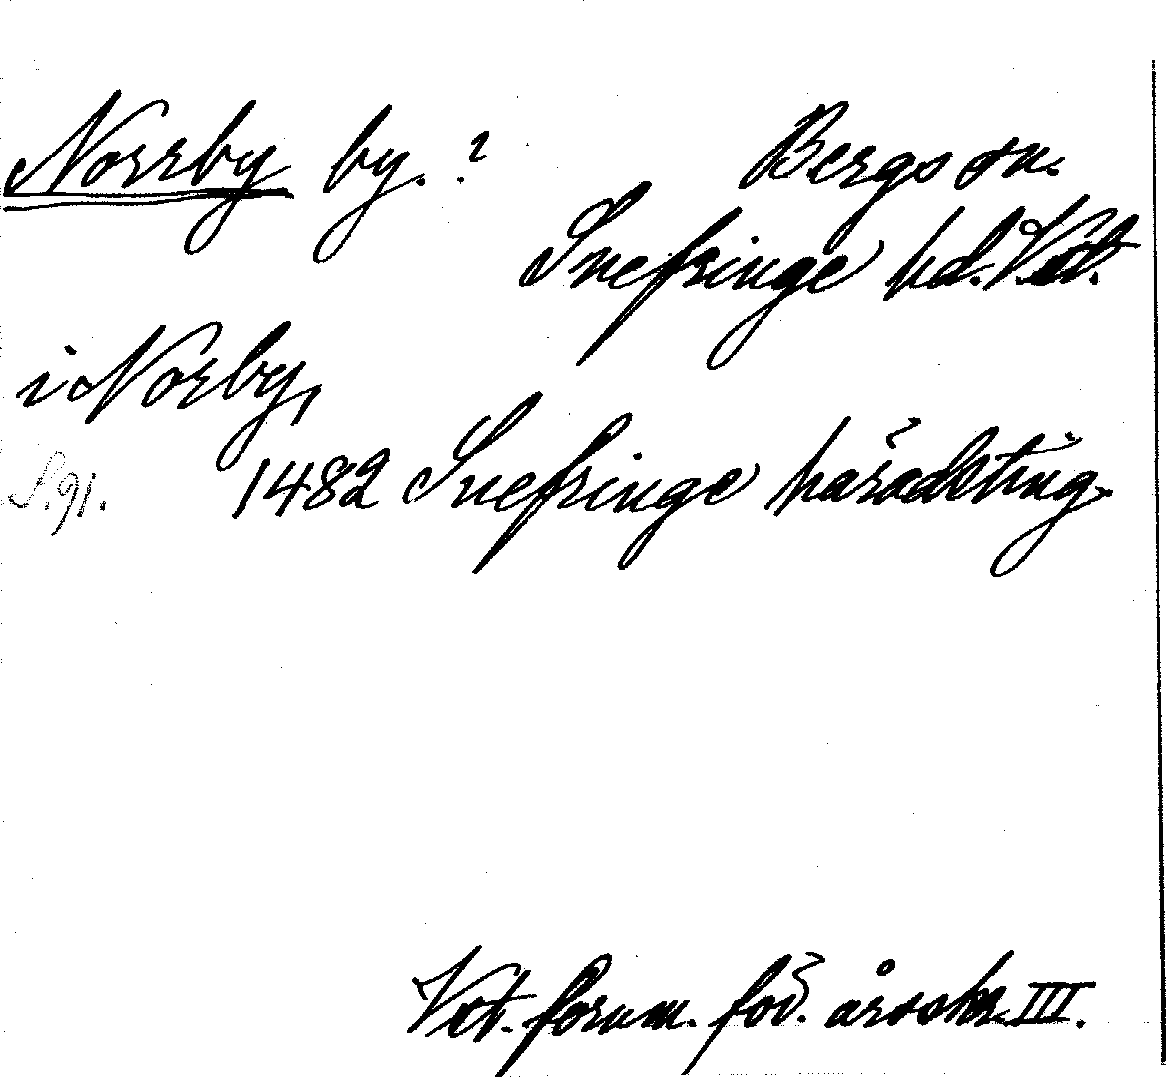 Norrby by. ? Bergs sn.
Snefringe hd. Vstl.
i Norby,
S. 91. 1482 Snefringe häradsting
Vst. fornm.för. årsskr. III.